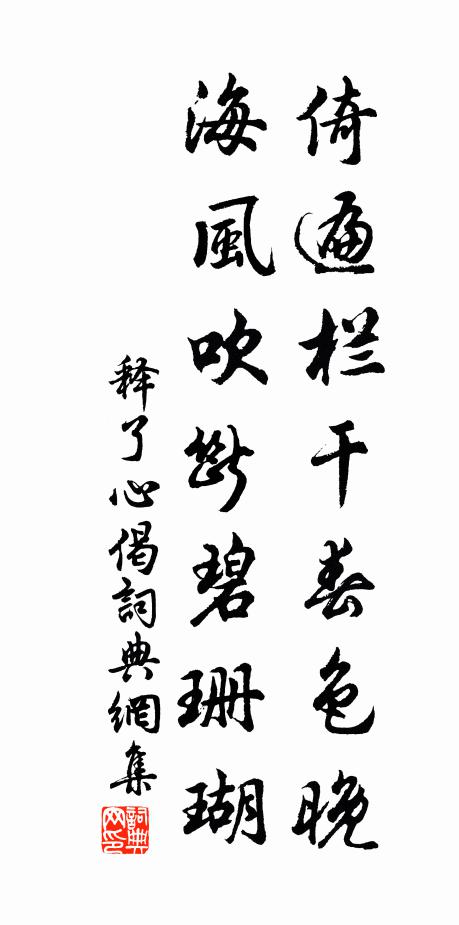 倚遍栏干春色晚
海風吹斷碧珊瑚
释了心偈詞典網集
詞典网印